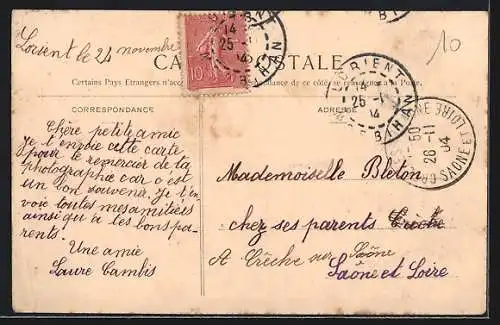 Lorient le 24 novembre
CA
STALE
Certains Pays Etrangers n'acc
dance de ce côté
à la Poste.
10
14
25 -11
04
MORBIHAN
LORIENT
14
25 -11
04
MORBIHAN
CORRESPONDANCE
ADRESSE
SAONE ET LOIRE
50
26 -11
04
Chère petite amie
Je t'envoie cette carte
pour te remercier de la
photographie car c'est
un bon souvenir. Je t'en
voie toutes mes amitiés
ainsi qu'a tes bons pa-
rents.
Une amie
Laure Cambis
Mademoiselle Bleton
chez ses parents Crèche
A Crêche sur Saône
Saône et Loire